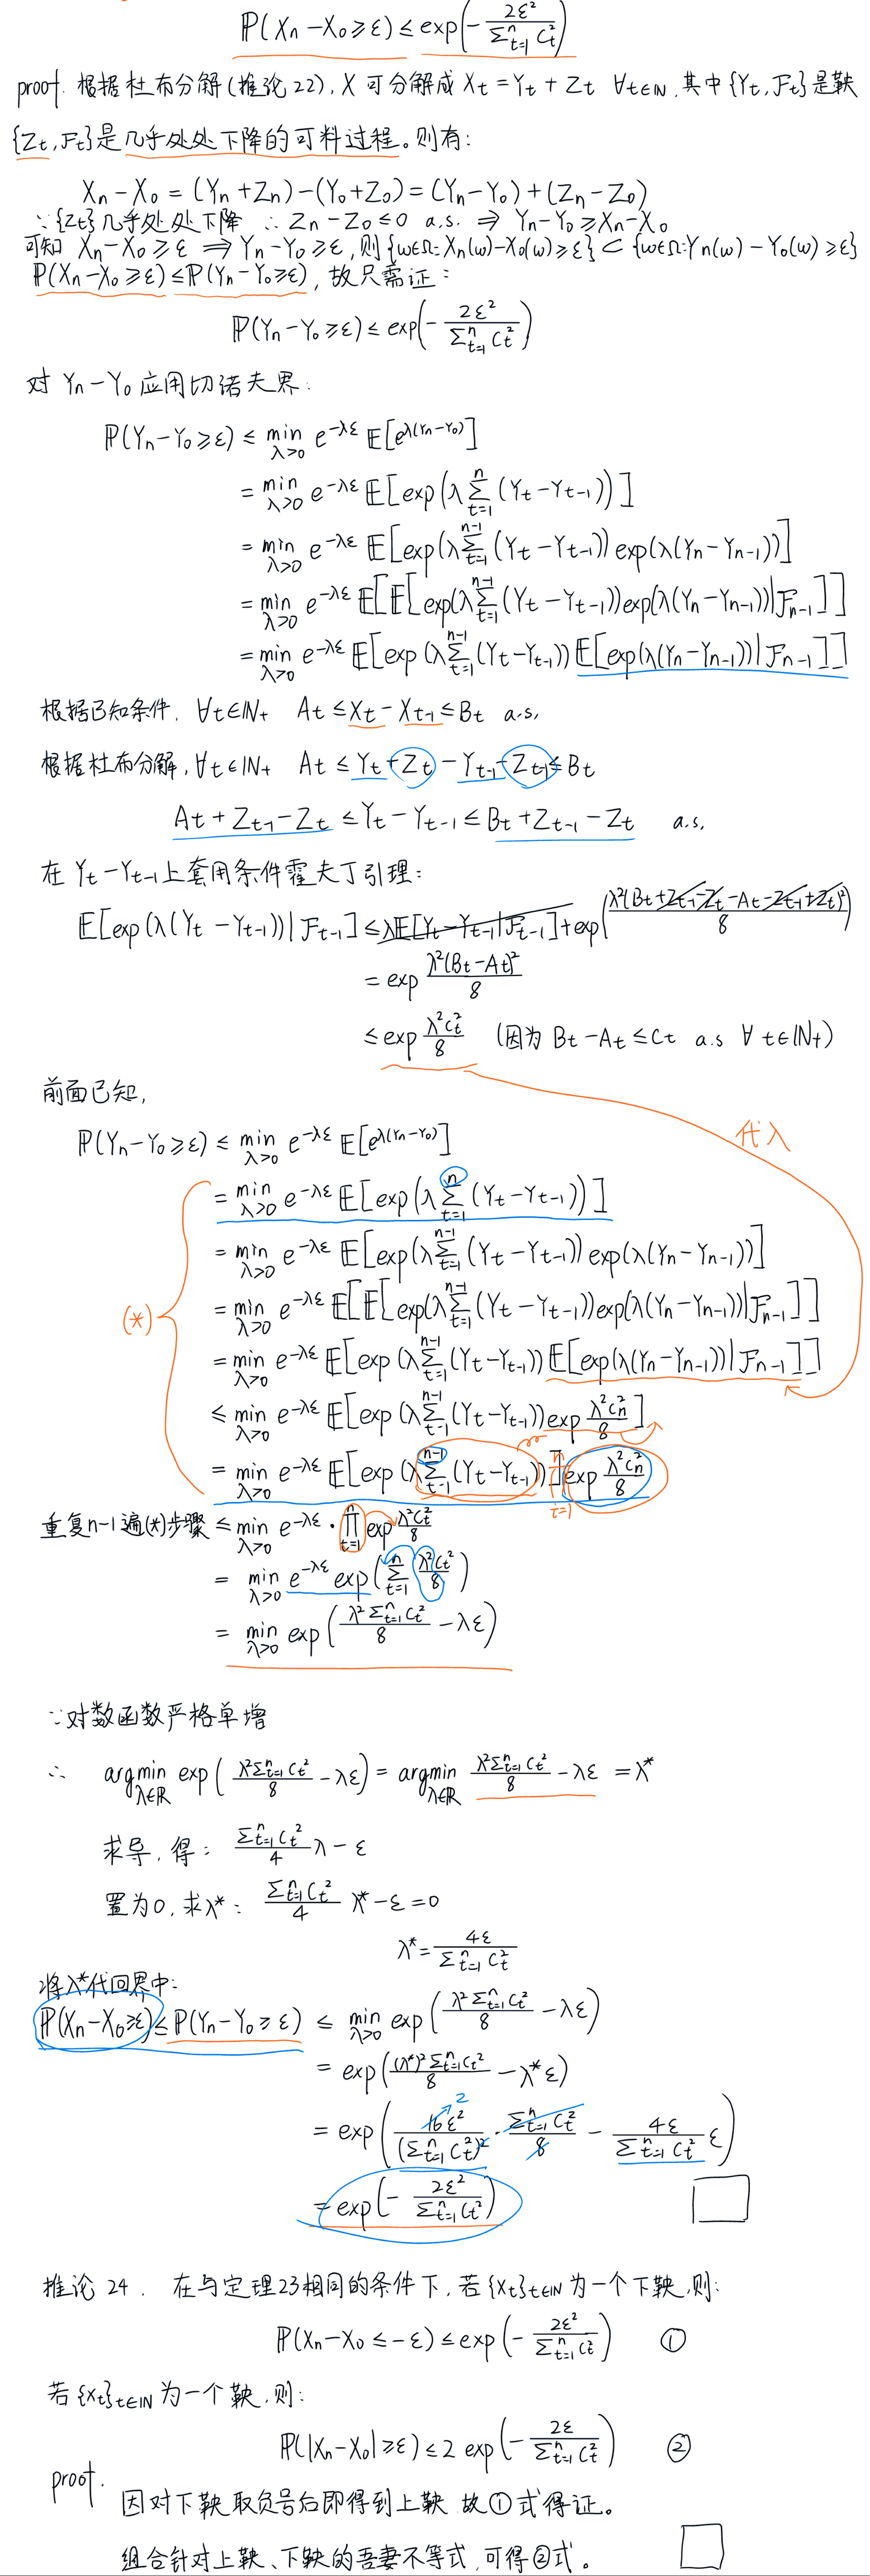 ℙ(Xₙ-X₀≥ε) ≤ exp(-2ε²/Σₜ₌₁ⁿ Cₜ²)
proof. 根据杜布分解(推论22), X 可分解成 Xₜ=Yₜ+Zₜ ∀t∈ℕ, 其中{Yₜ,ℱₜ}是鞅
{Zₜ,ℱₜ}是几乎处处下降的可料过程。则有:
Xₙ-X₀ = (Yₙ+Zₙ)-(Y₀+Z₀) = (Yₙ-Y₀)+(Zₙ-Z₀)
∵{Zₜ}几乎处处下降 ∴ Zₙ-Z₀≤0 a.s. ⇒ Yₙ-Y₀≥Xₙ-X₀
可知 Xₙ-X₀≥ε ⇒ Yₙ-Y₀≥ε, 则{ω∈Ω:Xₙ(ω)-X₀(ω)≥ε}⊂{ω∈Ω:Yₙ(ω)-Y₀(ω)≥ε}
ℙ(Xₙ-X₀≥ε)≤ℙ(Yₙ-Y₀≥ε), 故只需证:
ℙ(Yₙ-Y₀≥ε) ≤ exp(-2ε²/Σₜ₌₁ⁿ Cₜ²)
对 Yₙ-Y₀ 应用切诺夫界:
ℙ(Yₙ-Y₀≥ε) ≤ min_{λ>0} e^{-λε} 𝔼[e^{λ(Yₙ-Y₀)}]
= min_{λ>0} e^{-λε} 𝔼[exp(λ Σₜ₌₁ⁿ (Yₜ-Yₜ₋₁))]
= min_{λ>0} e^{-λε} 𝔼[exp(λ Σₜ₌₁ⁿ⁻¹ (Yₜ-Yₜ₋₁)) exp(λ(Yₙ-Yₙ₋₁))]
= min_{λ>0} e^{-λε} 𝔼[𝔼[exp(λ Σₜ₌₁ⁿ⁻¹ (Yₜ-Yₜ₋₁)) exp(λ(Yₙ-Yₙ₋₁))|ℱₙ₋₁]]
= min_{λ>0} e^{-λε} 𝔼[exp(λ Σₜ₌₁ⁿ⁻¹ (Yₜ-Yₜ₋₁)) 𝔼[exp(λ(Yₙ-Yₙ₋₁))|ℱₙ₋₁]]
根据已知条件, ∀t∈ℕ₊ Aₜ≤Xₜ-Xₜ₋₁≤Bₜ a.s,
根据杜布分解, ∀t∈ℕ₊ Aₜ≤Yₜ+Zₜ-Yₜ₋₁-Zₜ₋₁≤Bₜ
Aₜ+Zₜ₋₁-Zₜ ≤ Yₜ-Yₜ₋₁ ≤ Bₜ+Zₜ₋₁-Zₜ a.s.
在 Yₜ-Yₜ₋₁上套用条件霍夫丁引理:
𝔼[exp(λ(Yₜ-Yₜ₋₁))|ℱₜ₋₁] ≤ λ𝔼[Yₜ-Yₜ₋₁|ℱₜ₋₁]+exp(λ²(Bₜ+Zₜ₋₁-Zₜ-Aₜ-Zₜ₋₁+Zₜ)²/8)
= exp λ²(Bₜ-Aₜ)²/8
≤ exp λ²Cₜ²/8 (因为 Bₜ-Aₜ≤Cₜ a.s ∀t∈ℕ₊)
前面已知,
代入
ℙ(Yₙ-Y₀≥ε) ≤ min_{λ>0} e^{-λε} 𝔼[e^{λ(Yₙ-Y₀)}]
= min_{λ>0} e^{-λε} 𝔼[exp(λ Σₜ₌₁ⁿ (Yₜ-Yₜ₋₁))]
= min_{λ>0} e^{-λε} 𝔼[exp(λ Σₜ₌₁ⁿ⁻¹ (Yₜ-Yₜ₋₁)) exp(λ(Yₙ-Yₙ₋₁))]
(*) = min_{λ>0} e^{-λε} 𝔼[𝔼[exp(λ Σₜ₌₁ⁿ⁻¹ (Yₜ-Yₜ₋₁)) exp(λ(Yₙ-Yₙ₋₁))|ℱₙ₋₁]]
= min_{λ>0} e^{-λε} 𝔼[exp(λ Σₜ₌₁ⁿ⁻¹ (Yₜ-Yₜ₋₁)) 𝔼[exp(λ(Yₙ-Yₙ₋₁))|ℱₙ₋₁]]
≤ min_{λ>0} e^{-λε} 𝔼[exp(λ Σₜ₌₁ⁿ⁻¹ (Yₜ-Yₜ₋₁)) exp λ²Cₙ²/8]
= min_{λ>0} e^{-λε} 𝔼[exp(λ Σₜ₌₁ⁿ⁻¹ (Yₜ-Yₜ₋₁))] ∏ₜ₌₁ⁿ exp λ²Cₙ²/8
重复n-1遍(*)步骤 ≤ min_{λ>0} e^{-λε} · ∏ₜ₌₁ⁿ exp λ²Cₜ²/8
= min_{λ>0} e^{-λε} exp(Σₜ₌₁ⁿ λ²Cₜ²/8)
= min_{λ>0} exp(λ²Σₜ₌₁ⁿ Cₜ²/8 - λε)
∵对数函数严格单增
∴ argmin_{λ∈ℝ} exp(λ²Σₜ₌₁ⁿ Cₜ²/8 - λε) = argmin_{λ∈ℝ} λ²Σₜ₌₁ⁿ Cₜ²/8 - λε = λ*
求导, 得: Σₜ₌₁ⁿ Cₜ²/4 λ - ε
置为0, 求λ*: Σₜ₌₁ⁿ Cₜ²/4 λ* - ε = 0
λ* = 4ε/Σₜ₌₁ⁿ Cₜ²
将λ*代回界中:
ℙ(Xₙ-X₀≥ε)≤ℙ(Yₙ-Y₀≥ε) ≤ min_{λ>0} exp(λ²Σₜ₌₁ⁿ Cₜ²/8 - λε)
= exp((λ*)²Σₜ₌₁ⁿ Cₜ²/8 - λ*ε)
2
= exp(16ε²/(Σₜ₌₁ⁿ Cₜ²)² · Σₜ₌₁ⁿ Cₜ²/8 - 4ε/Σₜ₌₁ⁿ Cₜ² ε)
= exp(-2ε²/Σₜ₌₁ⁿ Cₜ²)
推论 24. 在与定理23相同的条件下, 若{Xₜ}t∈ℕ 为一个下鞅, 则:
ℙ(Xₙ-X₀≤-ε) ≤ exp(-2ε²/Σₜ₌₁ⁿ Cₜ²) ①
若{Xₜ}t∈ℕ 为一个鞅, 则:
ℙ(|Xₙ-X₀|≥ε) ≤ 2 exp(-2ε/Σₜ₌₁ⁿ Cₜ²) ②
proof.
因对下鞅取负号后即得到上鞅 故①式得证。
组合针对上鞅、下鞅的吾妻不等式, 可得②式。